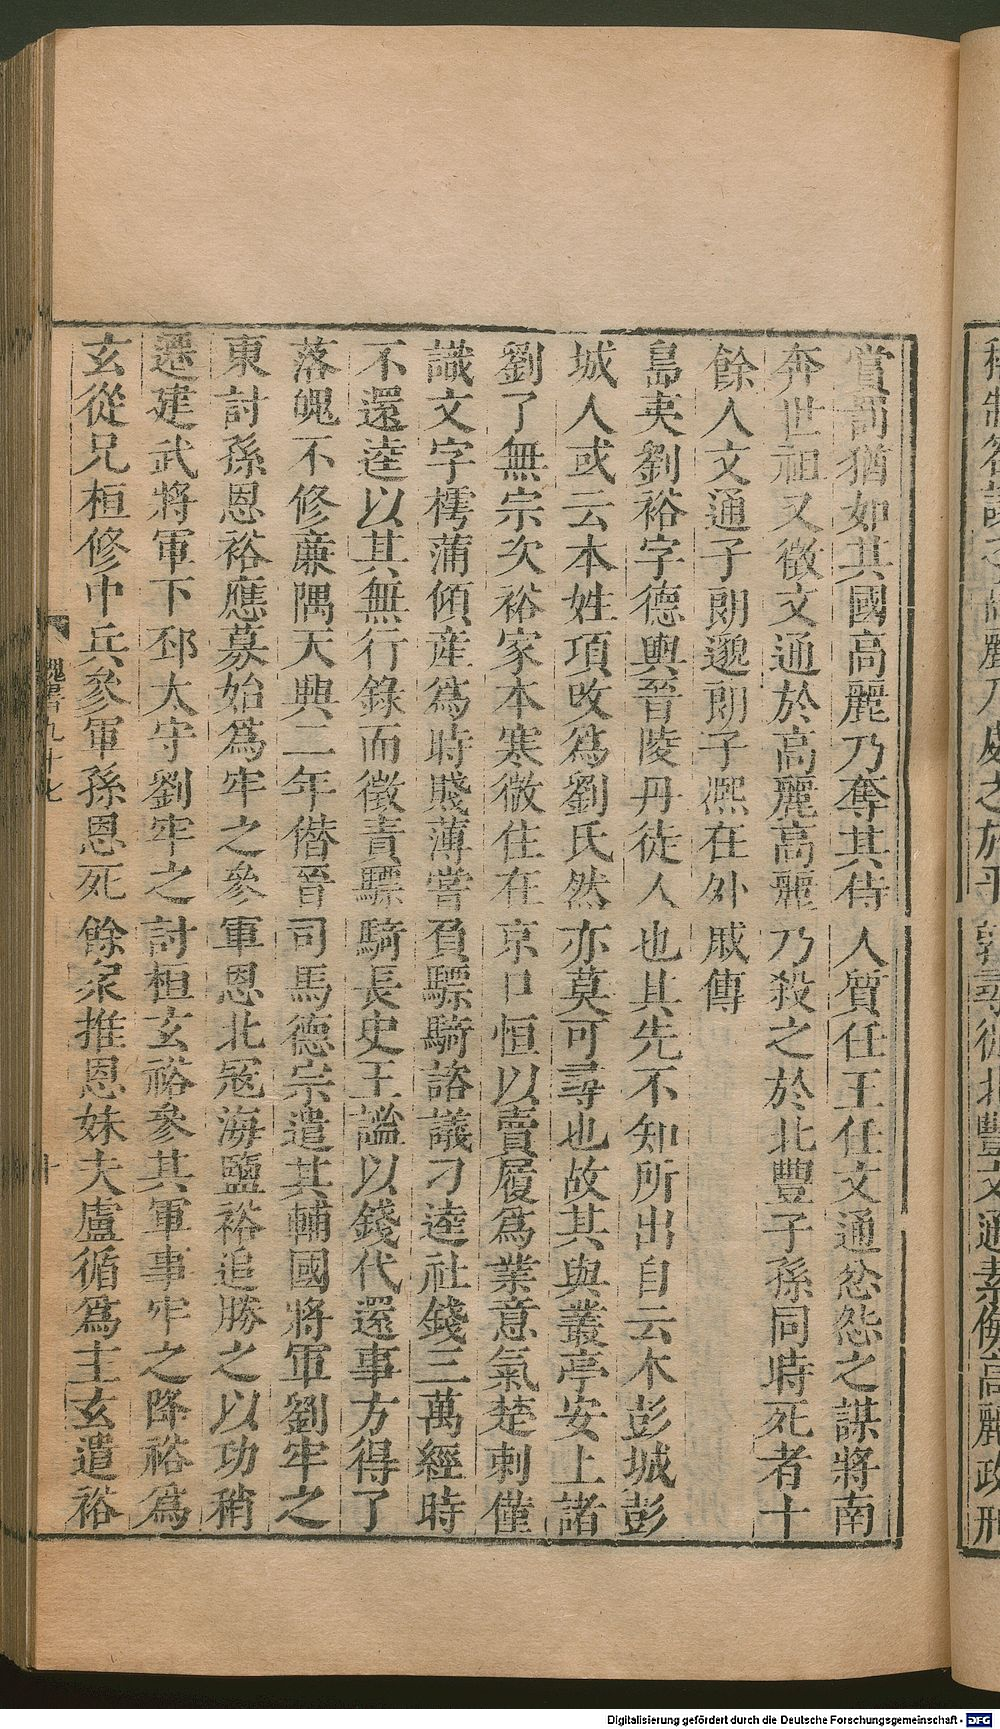 麗乃處之於平郭尋徙北豐文通素侮高麗政刑
賞罰猶如其國高麗乃奪其侍人質任王任文通忿怨之謀將南
奔世祖又徵文通於高麗高麗乃殺之於北豐子孫同時死者十
餘人文通子朗邈朗子熈在外戚傳
島夷劉裕字德輿晉陵丹徒人也其先不知所出自云本彭城彭
城人或云本姓項改爲劉氏然亦莫可尋也故其與叢亭安上諸
劉了無宗次裕家本寒微住在京口恒以賣履爲業意氣楚剌僅
識文字樗蒲傾産爲時賤薄嘗負驃騎諮議刁逵社錢三萬經時
不還逵以其無行錄而徵責驃騎長史王謐以錢代還事方得了
落魄不修廉隅天興二年僭晉司馬德宗遣其輔國將軍劉牢之
東討孫恩裕應募始爲牢之參軍恩北冦海鹽裕追勝之以功稍
遷建武將軍下邳太守劉牢之討桓玄裕參其軍事牢之降裕爲
玄從兄桓修中兵參軍孫恩死餘衆推恩妹夫盧循爲主玄遣裕
魏書九十七
十
Digitalisierung gefördert durch die Deutsche Forschungsgemeinschaft - DFG